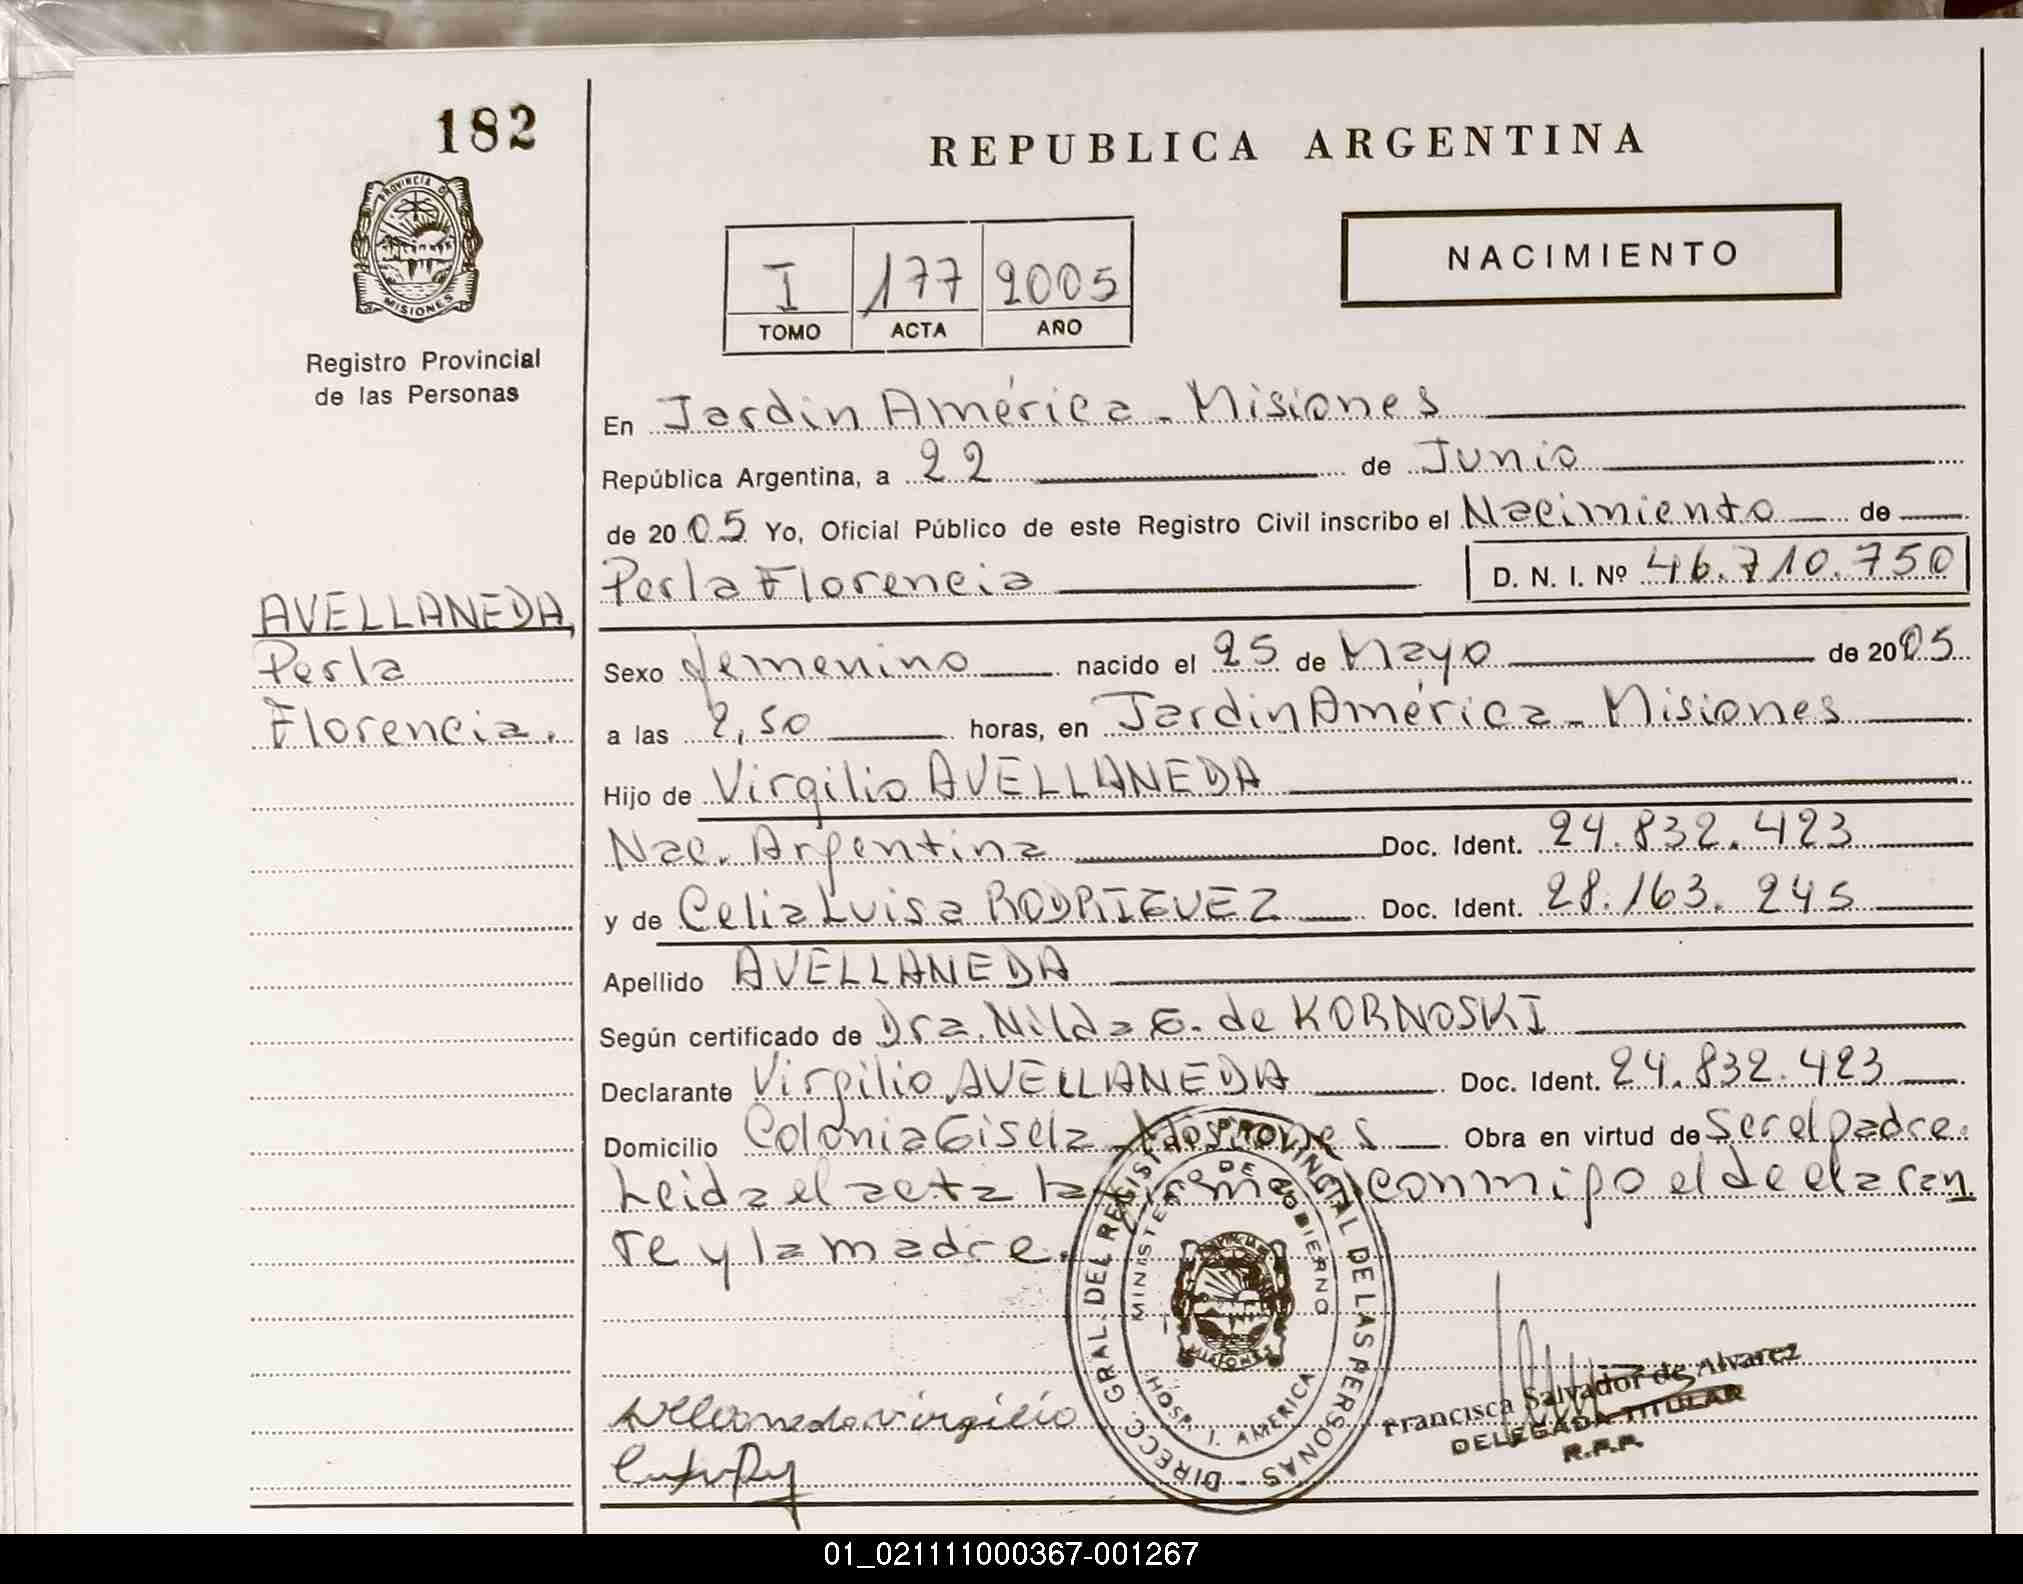 182
PROVINCIA D
MISIONES
Registro Provincial
de las Personas
AVELLANEDA,
Perla
Florencia.
REPUBLICA ARGENTINA
I 177 2005
TOMO ACTA AÑO
NACIMIENTO
En Jardin América - Misiones
República Argentina, a 22 de Junio
de 2005 Yo, Oficial Público de este Registro Civil inscribo el Nacimiento de
Perla Florencia D. N. I. Nº 46.710.750
Sexo femenino nacido el 25 de Mayo de 2005
a las 2,50 horas, en Jardin América - Misiones
Hijo de Virgilio AVELLANEDA
Nac. Argentina Doc. Ident. 24.832.423
y de Celia Luisa RODRIGUEZ Doc. Ident. 28.163.245
Apellido AVELLANEDA
Según certificado de Dra. Nilda G. de KORNOSKI
Declarante Virgilio AVELLANEDA Doc. Ident. 24.832.423
Domicilio Colonia Gisela - Misiones Obra en virtud de Ser el padre.
Leida el acta la firman conmigo el declaran
te y la madre.
DIRECC. GRAL. DEL REGIST. PROVINCIAL DE LAS PERSONAS
MINISTERIO DE GOBIERNO
MISIONES
HOSP. J. AMERICA
Avellaneda virgilio
Francisca Salvador de Alvarez
DELEGADA TITULAR
R.P.P.
01_021111000367-001267